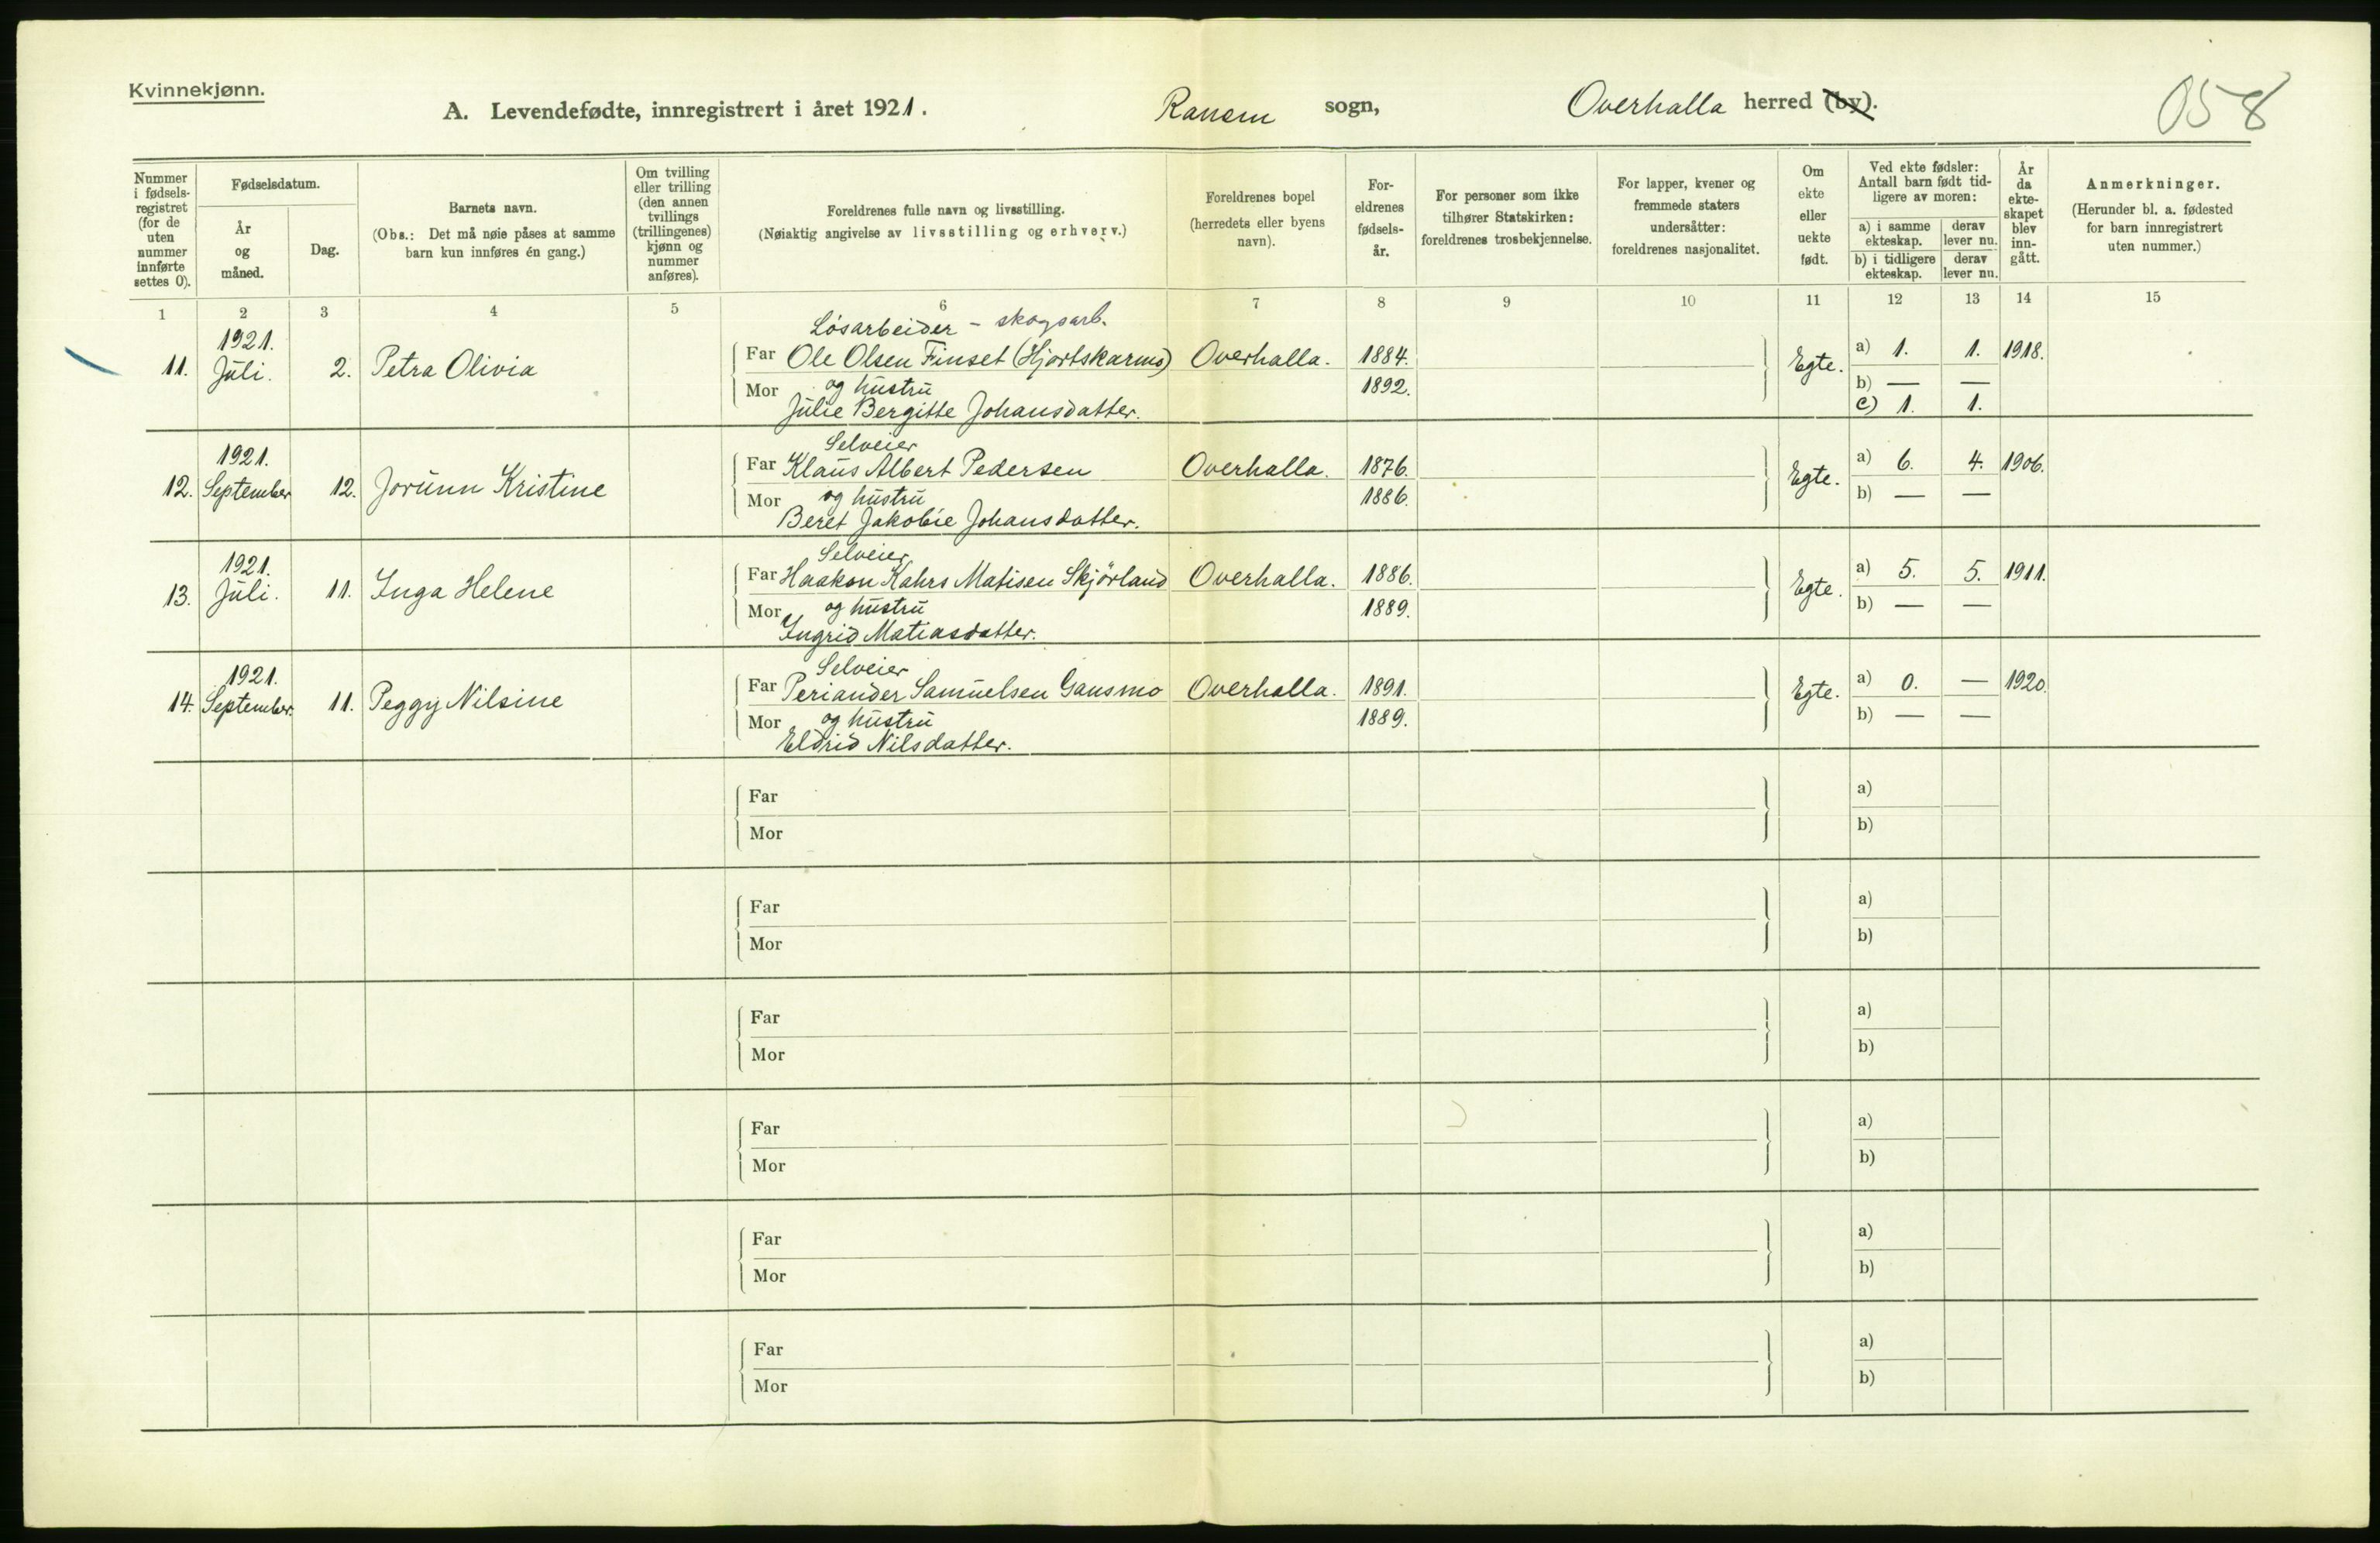 Kvinnekjønn.
A. Levendefødte, innregistrert i året 1921.
Ranem sogn,
Overhalla herred (by).
058
Nummer i fødsels-registret (for de uten nummer innførte settes 0).
Fødselsdatum.
År og måned.
Dag.
Barnets navn.
(Obs.: Det må nøie påses at samme barn kun innføres én gang.)
Om tvilling eller trilling (den annen tvillings (trillingenes) kjønn og nummer anføres).
Foreldrenes fulle navn og livsstilling.
(Nøiaktig angivelse av livsstilling og erhverv.)
Foreldrenes bopel (herredets eller byens navn).
For-eldrenes fødsels-år.
For personer som ikke tilhører Statskirken: foreldrenes trosbekjennelse.
For lapper, kvener og fremmede staters undersåtter: foreldrenes nasjonalitet.
Om ekte eller uekte født.
Ved ekte fødsler: Antall barn født tid-ligere av moren:
a) i samme ekteskap.
derav lever nu.
b) i tidligere ekteskap.
derav lever nu.
År da ekte-skapet blev inn-gått.
Anmerkninger.
(Herunder bl. a. fødested for barn innregistrert uten nummer.)
1 2 3 4 5 6 7 8 9 10 11 12 13 14 15
Løsarbeider - skogsarb.
11. 1921. Juli. 2. Petra Olivia Far Ole Olsen Finset (Hjortskarmo) Overhalla. 1884. Egte. a) 1. 1. 1918.
Mor og hustru 1892. b) — —
Julie Bergitte Johansdatter. c) 1. 1.
Selveier
12. 1921. September 12. Jorunn Kristine Far Klaus Albert Pedersen Overhalla. 1876. Egte. a) 6. 4. 1906.
Mor og hustru 1886. b) — —
Beret Jakobie Johansdatter.
Selveier
13. 1921. Juli. 11. Inga Helene Far Haakon Kahrs Matisen Skjørland Overhalla. 1886. Egte. a) 5. 5. 1911.
Mor og hustru 1889. b) — —
Ingrid Matiasdatter.
Selveier
14. 1921. September. 11. Peggy Nilsine Far Periander Samuelsen Gansmo Overhalla. 1891. Egte. a) 0. — 1920.
Mor og hustru 1889. b) — —
Eldrid Nilsdatter.
Far a)
Mor b)
Far a)
Mor b)
Far a)
Mor b)
Far a)
Mor b)
Far a)
Mor b)
Far a)
Mor b)